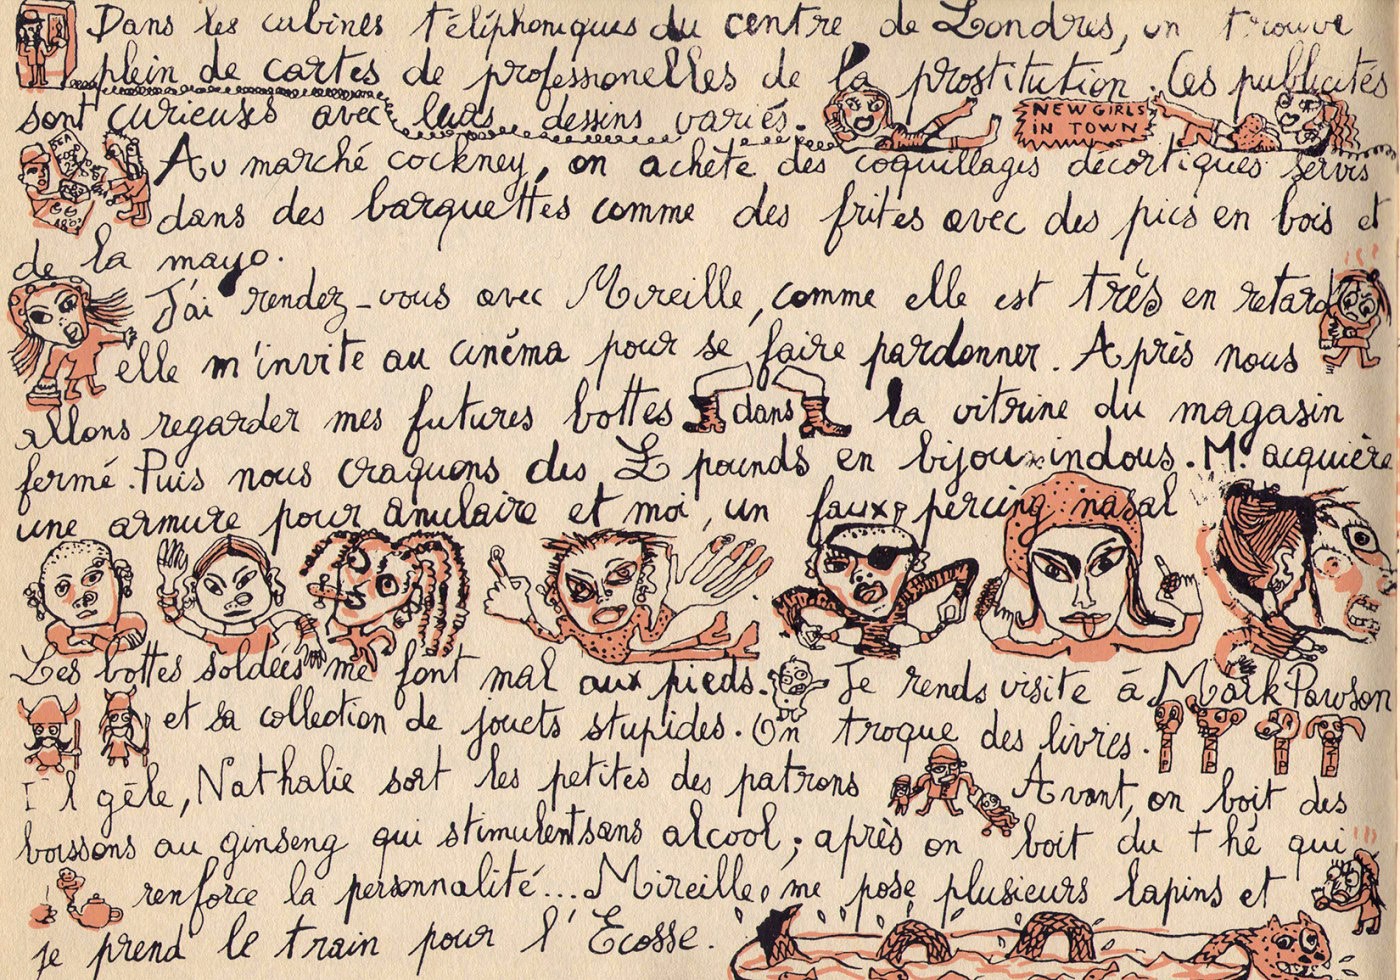 Dans les cabines téléphoniques du centre de Londres, on trouve
plein de cartes de professionelles de la prostitution. Ces publicités
sont curieuses avec leurs dessins variés.
NEW GIRLS
IN TOWN
Au marché cockney, on achète des coquillages décortiqués servis
dans des barquettes comme des frites avec des pics en bois et
de la mayo.
J'ai rendez-vous avec Mireille, comme elle est très en retard
elle m'invite au cinéma pour se faire pardonner. Après nous
allons regarder mes futures bottes dans la vitrine du magasin
fermé. Puis nous craquons des £ pounds en bijoux indous. M. acquière
une armure pour anulaire et moi, un faux percing nasal
Les bottes soldées me font mal aux pieds. Je rends visite à Mark Pawson
et sa collection de jouets stupides. On troque des livres.
Il gèle, Nathalie sort les petites des patrons Avant, on boit des
boissons au ginseng qui stimulent sans alcool ; après on boit du thé qui
renforce la personnalité... Mireille me pose plusieurs lapins et
je prend le train pour l'Ecosse.